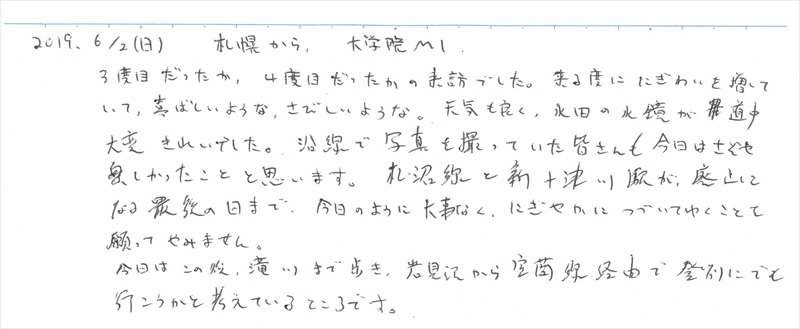 2019. 6/2(日) 札幌から. 大学院M1.
3度目だったか, 4度目だったかの来訪でした。来る度ににぎわいを増して
いて, 喜ばしいような, さびしいような。天気も良く, 水田の水鏡が道中
大変きれいでした。沿線で写真を撮っていた皆さんも今日はさぞや
楽しかったことと思います。札沼線と新十津川駅が, 廃止に
なる最後の日まで, 今日のように大事なく, にぎやかにつづいてゆくことを
願ってやみません。
今日はこの後, 滝川まで歩き, 岩見沢から室蘭線経由で登別にでも
行こうかと考えているところです。